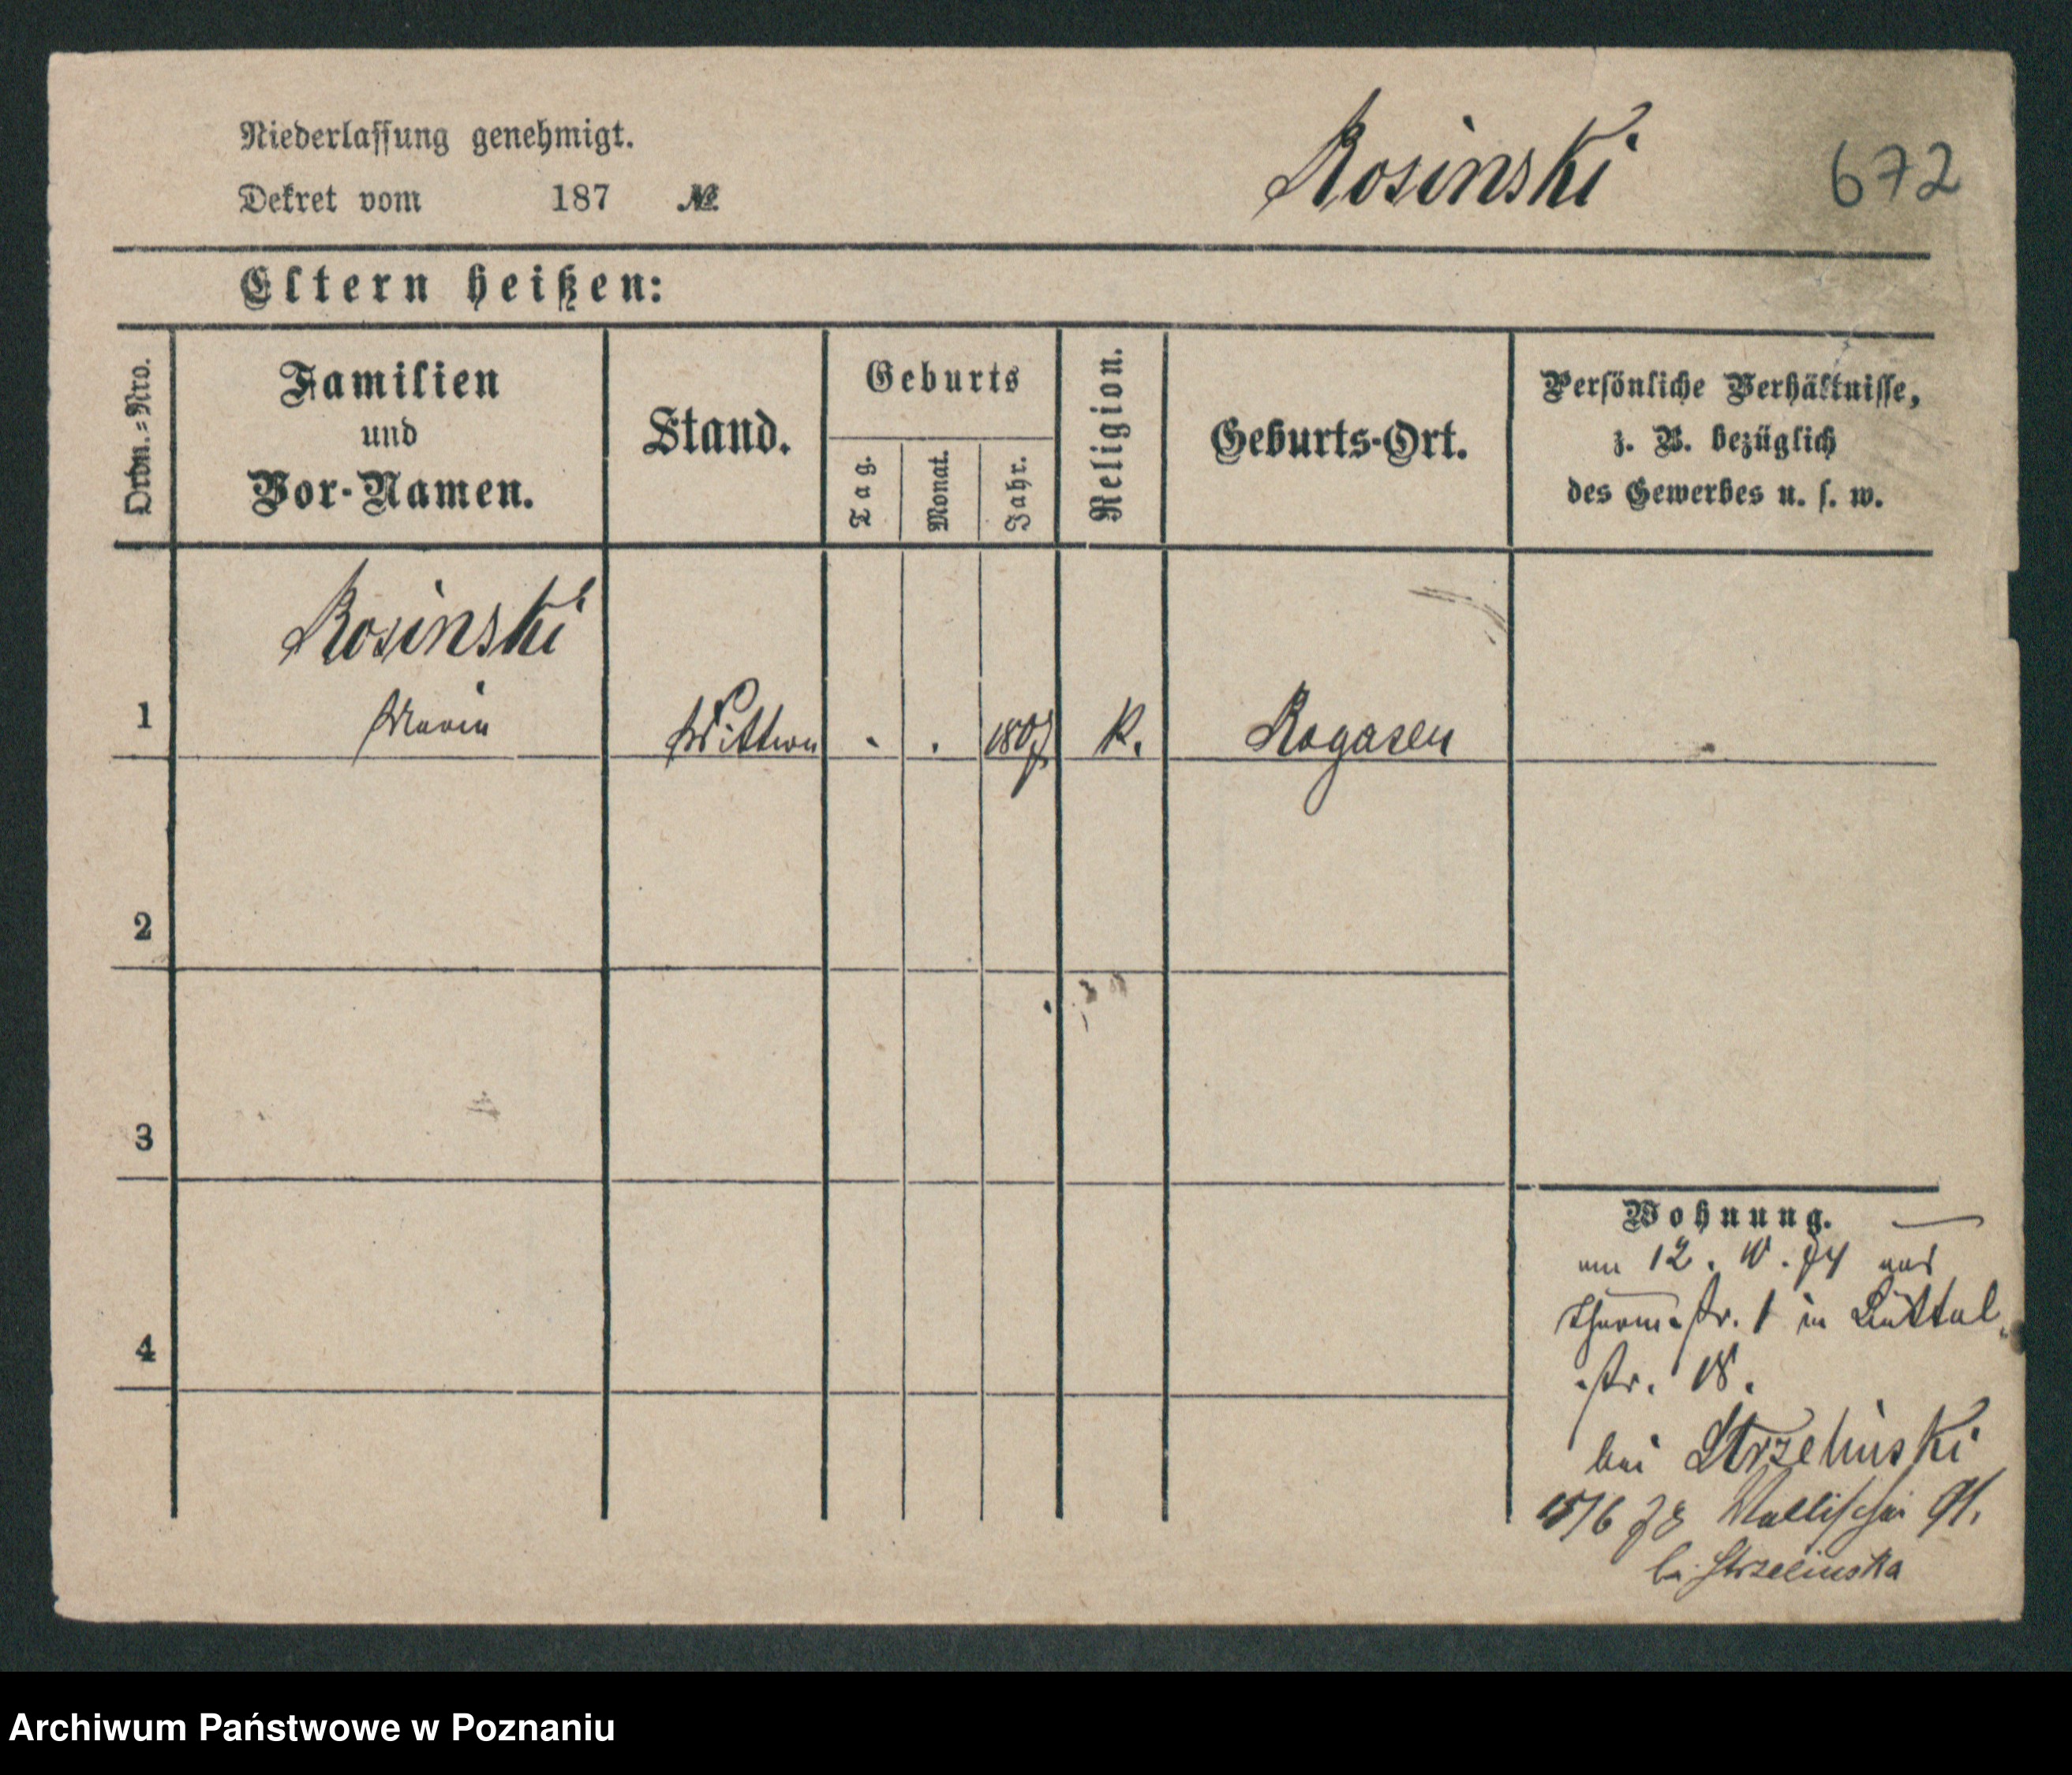 Niederlassung genehmigt.
Rosinski
672
Dekret vom 187 №
Eltern heißen:
Ordn.=Nro.
Familien
und
Vor-Namen.
Stand.
Geburts
Tag.
Monat.
Jahr.
Religion.
Geburts-Ort.
Persönliche Verhältnisse,
z. B. bezüglich
des Gewerbes u. s. w.
Rosinski
1 Maria Wittwe . . 1807 K. Rogasen
2
3
4
Wohnung.
am 12. 10. 74 aus
Thurmstr. 1 in Büttel-
str. 18.
bei Strzelinski
15/6 78 Wallischei 91.
bei Strzelinska
Archiwum Państwowe w Poznaniu